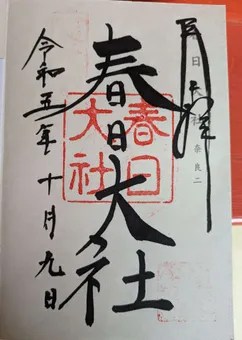 奉拝
奈良二
春日大社
春日
大社
令和五年十月九日